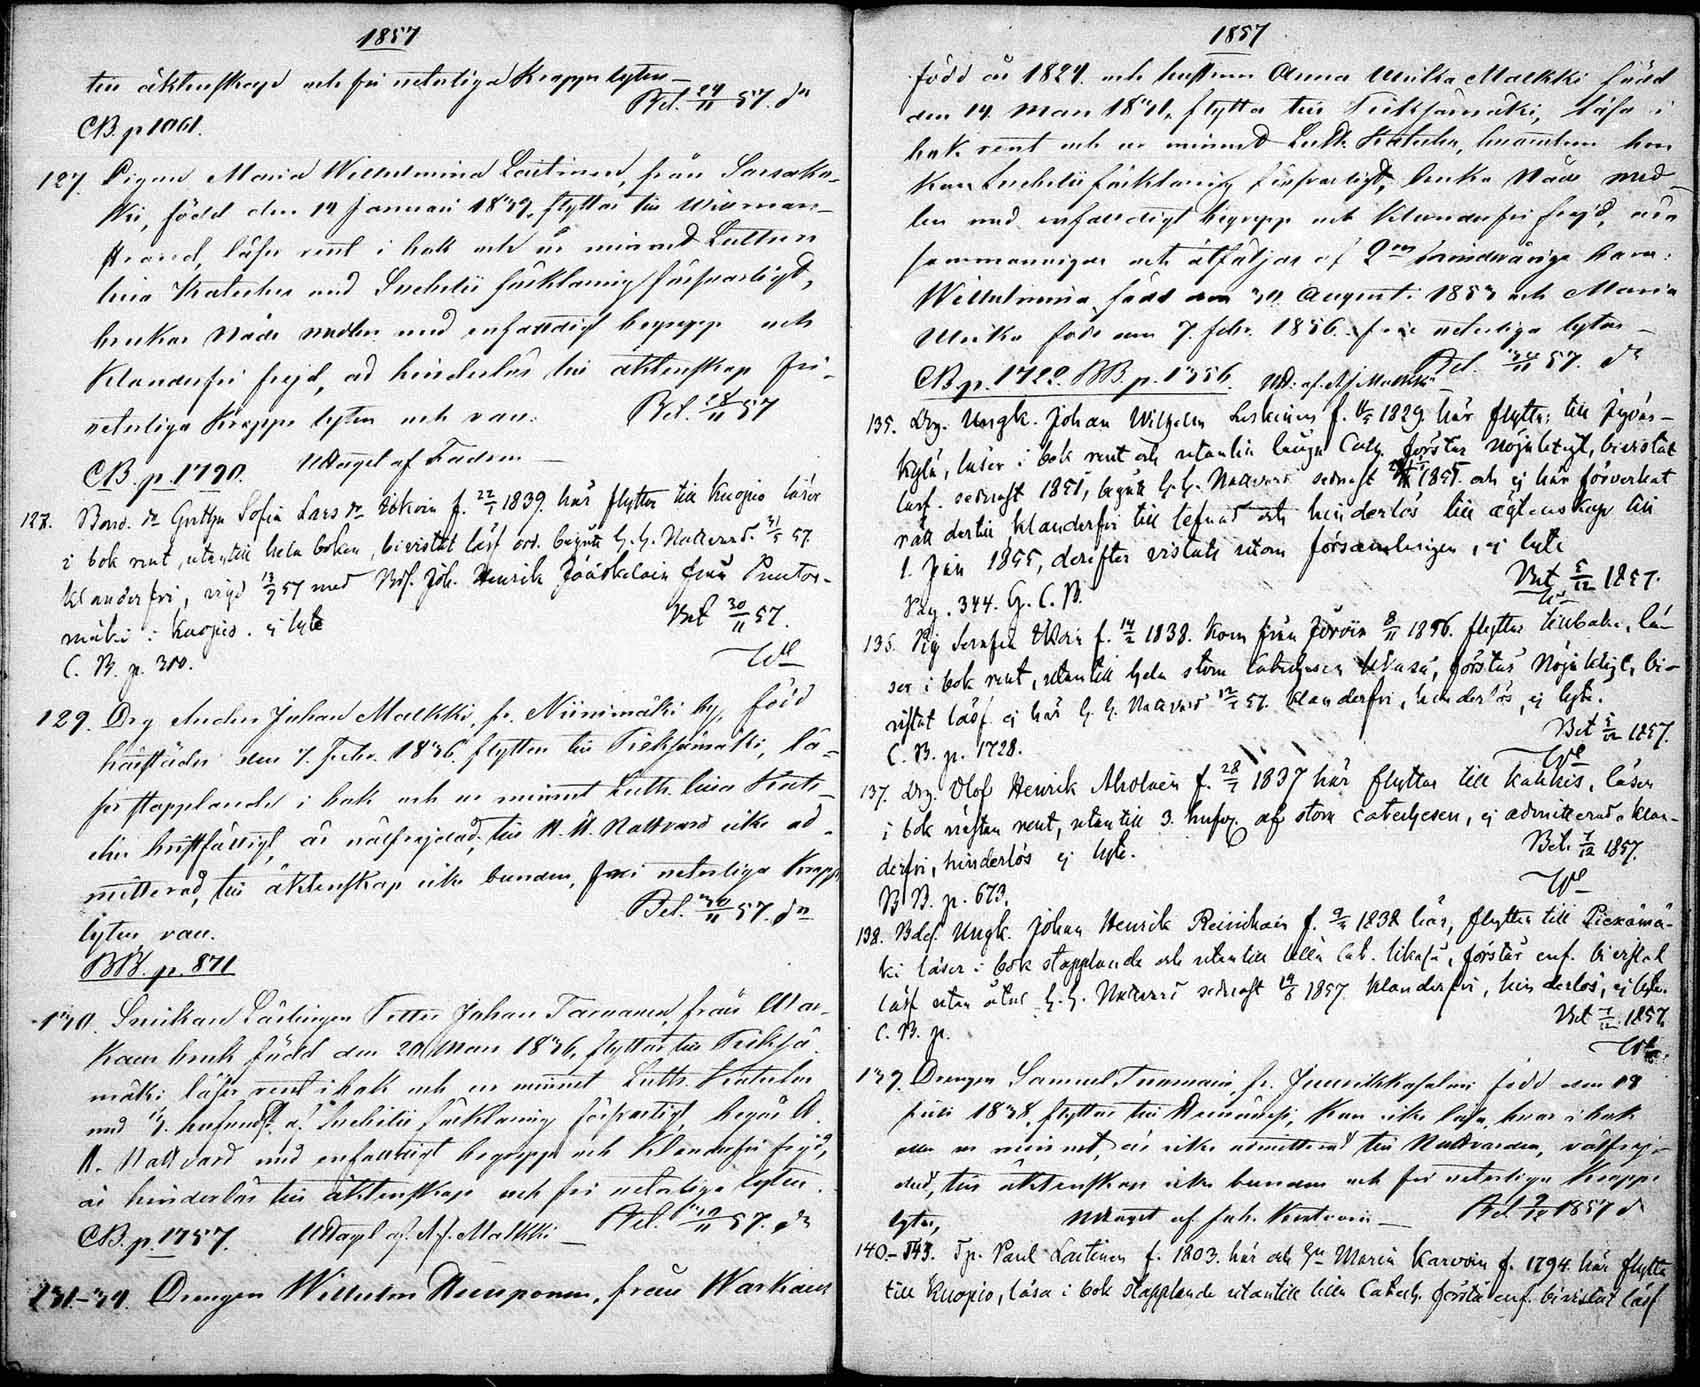 1857
till äktenskap och fri naturliga Kroppslyten
Bet. 24/11 57. dn
CB. p 1061.
127. Pigan Maria Wilhelmina Laitinen, från Sarvaka-
ki, född den 14 Januari 1839, flyttar till Willman-
strand, läser rent i bok och ur minnet Lutheri
lilla Kateches med Svebelii förklaring försvarligt,
brukar Nåde medlen med enfaldigt begrepp och
klanderfri frejd, och hinderlös till äktenskap fri
naturliga Kropps lyten och van.
Bet. 28/11 57
CB. p. 1790. Uttaget af Fadren
128. Bond. dr Gretha Sofia Lars dr f. 22/1 1839. här flyttar till Kuopio läser
i bok rent, utantill hela boken, bevistat läsf. ord. begått H. H. Nattvard. 31/5 57.
klanderfri, vigd 13/9 57 med Bds. Joh. Henrik Jääskeläin från Puutos-
mäki i Kuopio. ej lyte
Bet 30/11 57.
C. B. p. 300.
129. Drg Anders Johan Malkki, fr. Niinimäki by, född
härstädes den 7. Febr. 1836, flyttar till Pieksämäki, lä-
ser stapplande i bok och ur minnet Luth. lilla Kate-
ches bristfälligt, är välfrejdad, till H. H. Nattvard icke ad-
mitterad, till äktenskap icke bunden, fri naturliga Kropps
lyten van.
Bet. 30/11 57. dn
BB. p. 871
130. Smikare Lärlingen Petter Johan Tarvanen, från War-
kaus bruk född den 20 Mars 1836, flyttar till Pieksä-
mäki, läser rent i bok och ur minnet Luth. Kateches
med 1/3 hufvudst. af Svebelii förklaring försvarligt, begår H.
H. Nattvard med enfaldigt begrepp och Klanderfri frejd,
är hinderlös till äktenskap och fri naturliga lyten.
Bet. 30/11 57. dn
CB. p. 1757. Uttagit af A. J. Malkki
131-34. Drengen Wilhelm Ruuponen, från Warkaus
1857
född år 1824. och hustrun Anna Ulrika Malkki född
den 14 Mars 1831, flytta till Pieksämäki, läsa i
bok rent och ur minnet Luth. Kateches, hvarutom hon
kan Svebelii förklaring försvarligt, bruka Nåde med-
len med enfaldigt begrepp och klanderfri frejd, äro
sammanvigde och åtföljas af 2ne minderåriga barn:
Wilhelmina född den 30 Augusti 1853 och Maria
Ulrika född den 7. febr. 1856. fria naturliga lyten
Bet. 30/11 57. dn
CB. p. 1722. BB. p. 1356. Utt. af A. J. Malkki
135. Drg. Ungk. Johan Wilhelm Leskinen f. 1829. här flyttar till Jyväs-
kylä, läser i bok rent och utantill långa Cat. förstår nöjaktigt, bevistat
läsf. sednast 1851, begått H. H. Nattvard sednast 1851. och ej här förverkat
rätt dertill, klanderfri till lefnad och hinderlös till ägtenskap till
1. Juni 1855, derefter vistats utom församlingen, ej lyte
Bet 5/12 1857.
Pag. 344. G. C. B.
136. Pig Serafia f. 14/2 1838. kom från Jorois 8/11 1856. flyttar tillbaka, lä-
ser i bok rent, utantill hela stora Catechesen likaså, förstår nöjaktigt, be-
vistat läsf. ej här H. H. Nattvard 57. klanderfri, hinderlös, ej lyte.
Bet 5/12 1857.
C. B. p. 1728.
137. Drg. Olof Henrik Aholain f. 28/7 1837 här flyttar till Kauhis, läser
i bok nästan rent, utantill 3. hufvq af stora catechesen, ej admitterad, klan-
derfri, hinderlös ej lyte.
Bet. 7/12 1857.
BB. p. 673.
138. Bds. Ungk. Johan Henrik Reinikain f. 1838 här, flyttar till Piexämä-
ki läser i bok stapplande och utantill lilla Cat. likaså, förstår enf. bevistat
läsf utan åtal H. H. Nattvard sednast 1857. klanderfri, hinderlös, ej lyte.
Bet 7/12 1857.
C. B. p.
139. Drengen Samuel Turunain, fr. Juurikkasalmi född den 18
Juni 1838, flyttar till kan icke läsa, hvar i bok
eller ur minnet, är icke admitterad till Nattvarden, välfrej-
dad, till äktenskap icke bunden och fri naturliga Kropps
lyten, Uttaget af Joh. 1857 dn
140-143. Tp. Paul Laitinen f. 1803. här och Hu Maria Karvoin f. 1794. här flytta
till Kuopio, läsa i bok stapplande utantill lilla Catech. förstå enf. bevistat läsf